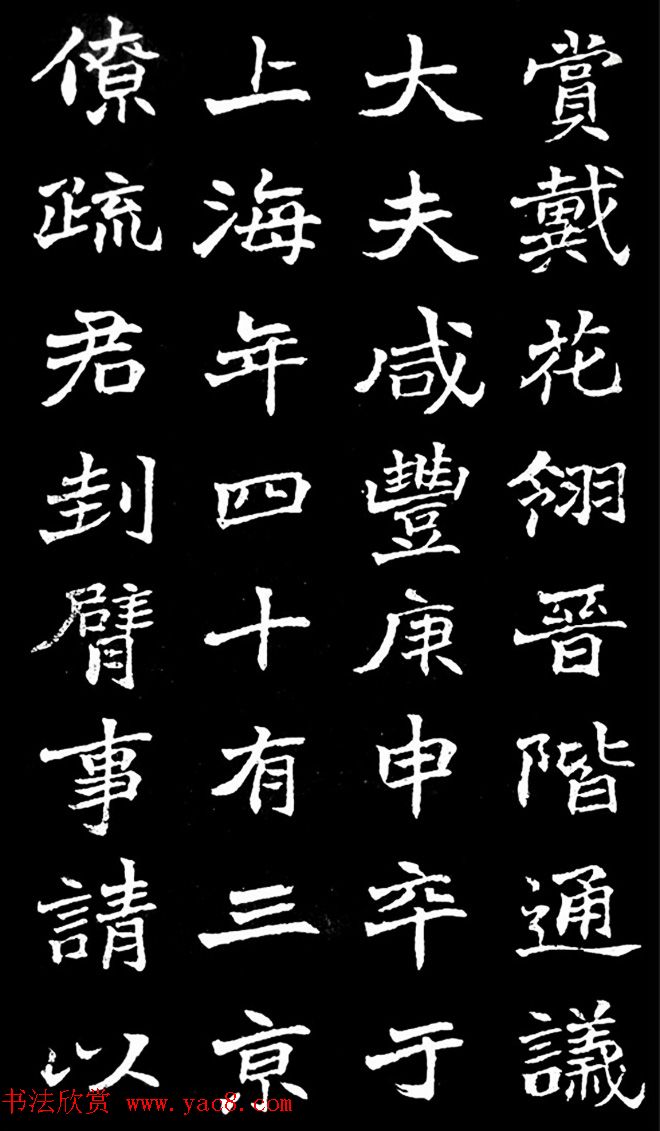 賞戴花翎晉階通議
大夫咸豐庚申卒于
上海年四十有三京
僚疏君刲臂事請以
书法欣赏 www.yac8.com